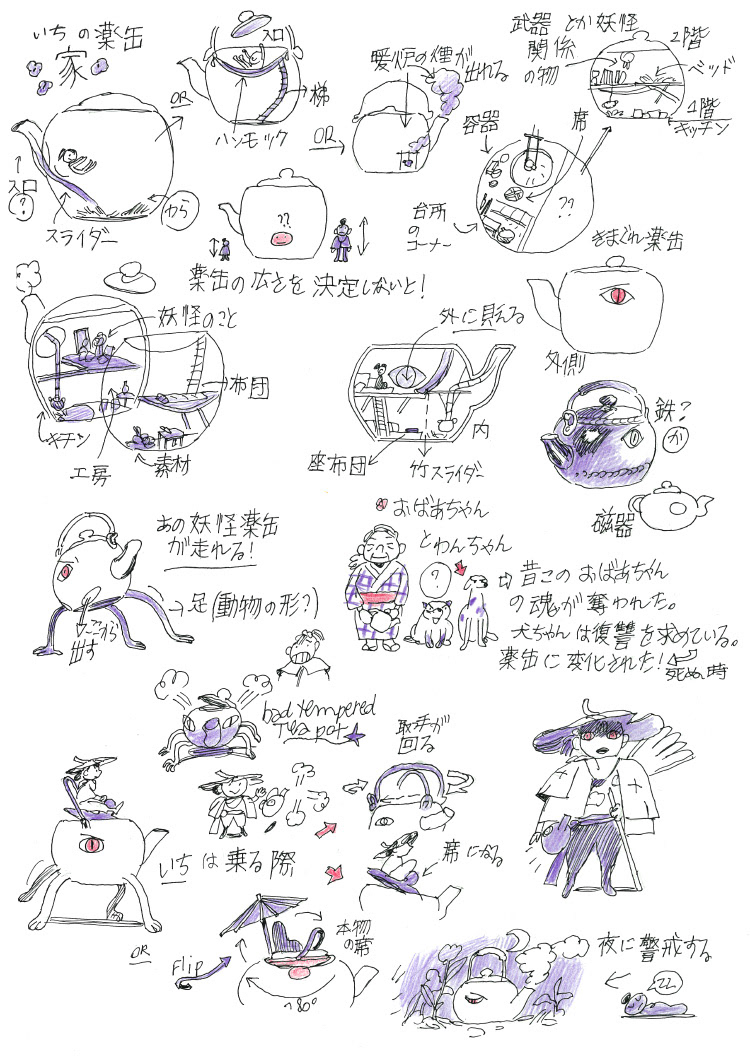 いちの薬缶
家
OR
入口
ハンモック
梯
暖炉の煙が
出れる
OR
武器とか妖怪
関係
の物
2階
ベッド
1階
キッチン
容器
席
台所
の
コーナー
??
↑
入口
?
スライダー
から
??
薬缶の広さを決定しないと!
きまぐれ薬缶
外側
妖怪のこと
布団
キチン
工房
素材
外に見える
内
座布団
竹スライダー
鉄?
か
磁器
あの妖怪薬缶
が走れる!
足(動物の形?)
ここから
出す
おばあちゃん
とわんちゃん
?
昔このおばあちゃん
の魂が奪われた。
犬ちゃんは復讐を求めている。
薬缶に変化された!
死ぬ時
bad tempered
Tea pot
取手が
回る
いちは乗る際
席になる
OR
Flip
本物
の席
180°
夜に警戒する
ZZ